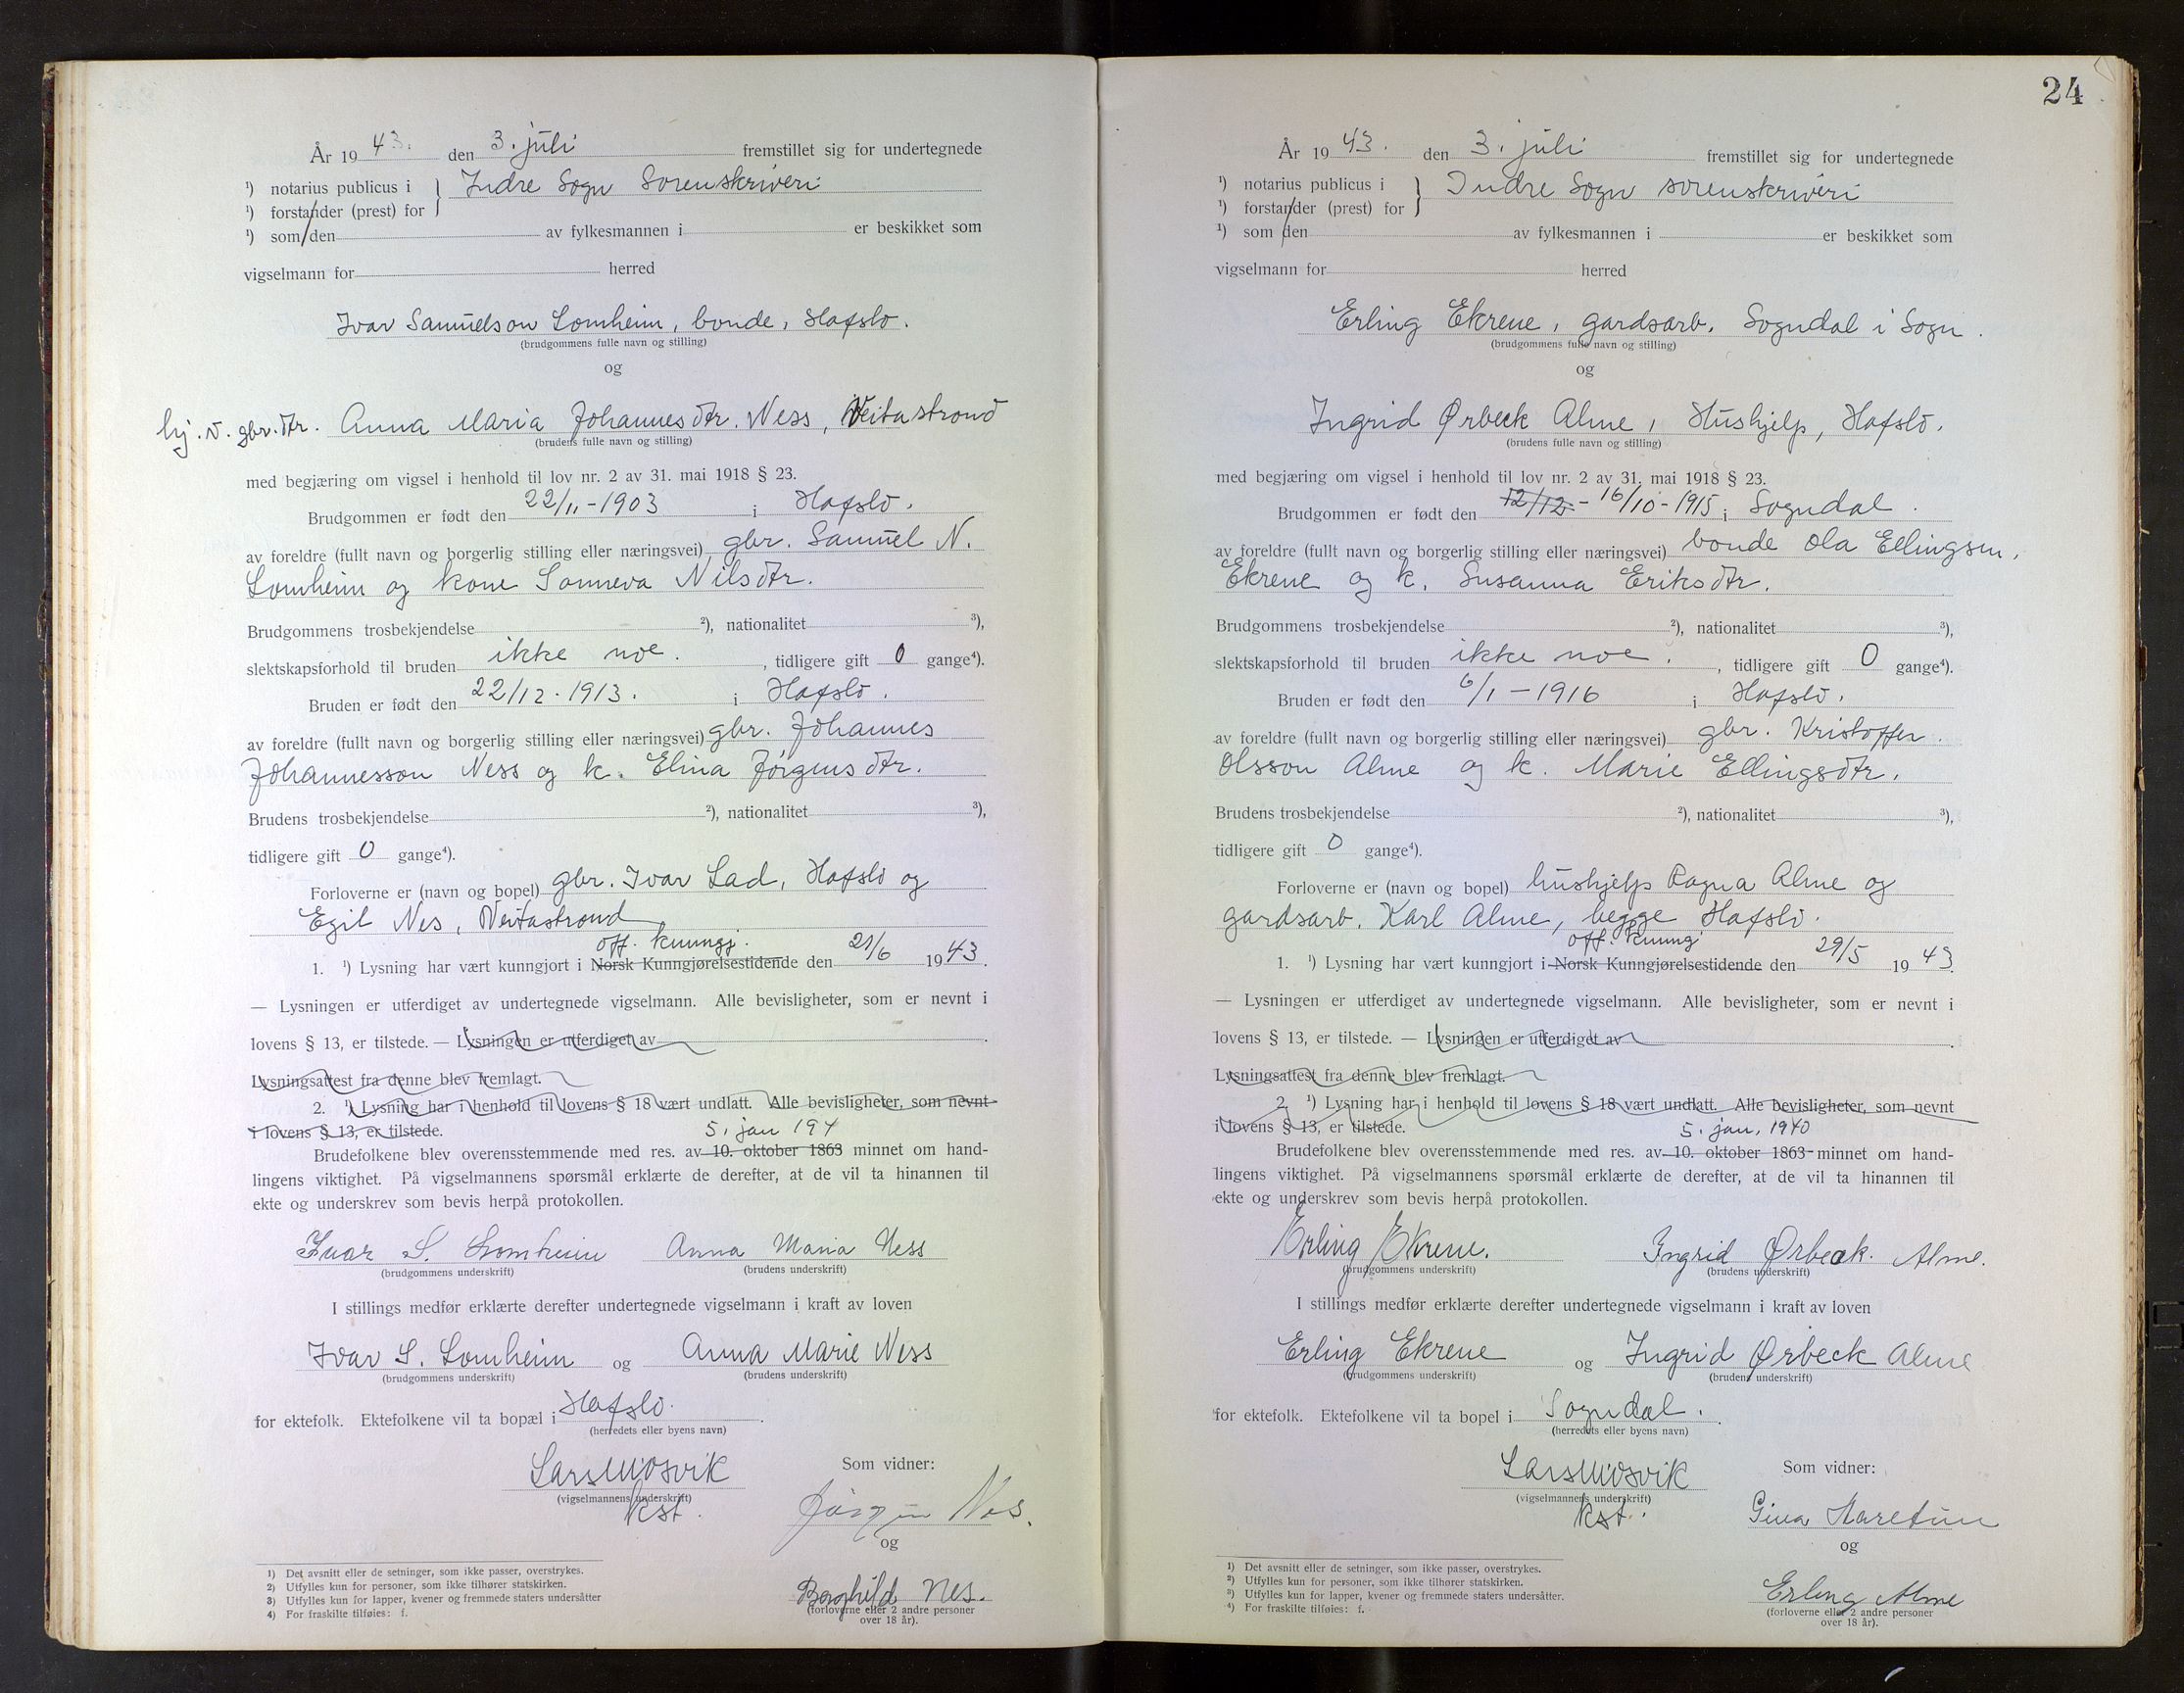 År 19 43. den 3. juli fremstillet sig for undertegnede
¹) notarius publicus i } Indre Sogn Sorenskriveri
¹) forstander (prest) for
¹) som den av fylkesmannen i er beskikket som
vigselmann for herred
Ivar Samuelson Lomheim, bonde, Hafslo.
(brudgommens fulle navn og stilling)
og
hj. v. gbr.dtr. Anna Maria Johannesdtr. Ness, Veitastrond
(brudens fulle navn og stilling)
med begjæring om vigsel i henhold til lov nr. 2 av 31. mai 1918 § 23.
Brudgommen er født den 22/11-1903 i Hafslo.
av foreldre (fullt navn og borgerlig stilling eller næringsvei) gbr. Samuel N.
Lomheim og kone Sonneva Nilsdtr.
Brudgommens trosbekjendelse ²), nationalitet ³),
slektskapsforhold til bruden ikke noe. , tidligere gift 0 gange⁴).
Bruden er født den 22/12.1913. i Hafslo.
av foreldre (fullt navn og borgerlig stilling eller næringsvei) gbr. Johannes
Johannesson Ness og k. Elina Jørgensdtr.
Brudens trosbekjendelse ²), nationalitet ³),
tidligere gift 0 gange⁴).
Forloverne er (navn og bopel) gbr. Ivar Lad, Hafslo og
Egil Nes, Veitastrond
off. kunngj.
1. ¹) Lysning har vært kunngjort i Norsk Kunngjørelsestidende den 21/6 1943.
— Lysningen er utferdiget av undertegnede vigselmann. Alle bevisligheter, som er nevnt i
lovens § 13, er tilstede. — Lysningen er utferdiget av .
Lysningsattest fra denne blev fremlagt.
2. ¹) Lysning har i henhold til lovens § 18 vært undlatt. Alle bevisligheter, som nevnt
i lovens § 13, er tilstede. 5. jan 194
Brudefolkene blev overensstemmende med res. av 10. oktober 1863 minnet om hand-
lingens viktighet. På vigselmannens spørsmål erklærte de derefter, at de vil ta hinannen til
ekte og underskrev som bevis herpå protokollen.
Ivar S. Lomheim Anna Maria Ness
(brudgommens underskrift) (brudens underskrift)
I stillings medfør erklærte derefter undertegnede vigselmann i kraft av loven
Ivar S. Lomheim og Anna Marie Ness
(brudgommens underskrift) (brudens underskrift)
for ektefolk. Ektefolkene vil ta bopæl i Hafslo.
(herredets eller byens navn)
Lars Midsvik Som vidner:
(vigselmannens underskrift)
kst. Jørgen Nes.
og
Borghild Nes.
(forloverne eller 2 andre personer
over 18 år).
1) Det avsnitt eller de setninger, som ikke passer, overstrykes.
2) Utfylles kun for personer, som ikke tilhører statskirken.
3) Utfylles kun for lapper, kvener og fremmede staters undersåtter
4) For fraskilte tilføies: f.
24
År 19 43. den 3. juli fremstillet sig for undertegnede
¹) notarius publicus i } Indre Sogn sorenskriveri
¹) forstander (prest) for
¹) som den av fylkesmannen i er beskikket som
vigselmann for herred
Erling Ekrene, gardsarb. Sogndal i Sogn.
(brudgommens fulle navn og stilling)
og
Ingrid Ørbeck Alme, Hushjelp, Hafslo.
(brudens fulle navn og stilling)
med begjæring om vigsel i henhold til lov nr. 2 av 31. mai 1918 § 23.
Brudgommen er født den 12/12 - 16/10-1915 i Sogndal.
av foreldre (fullt navn og borgerlig stilling eller næringsvei) bonde Ola Ellingsen,
Ekrene og k. Susanna Eriksdtr.
Brudgommens trosbekjendelse ²), nationalitet ³),
slektskapsforhold til bruden ikke noe. , tidligere gift 0 gange⁴).
Bruden er født den 6/1-1916 i Hafslo.
av foreldre (fullt navn og borgerlig stilling eller næringsvei) gbr. Kristoffer
Olsson Alme og k. Marie Ellingsdtr.
Brudens trosbekjendelse ²), nationalitet ³),
tidligere gift 0 gange⁴).
Forloverne er (navn og bopel) hushjelp Ragna Alme og
gardsarb. Karl Alme, begge Hafslo.
off. kunng
1. ¹) Lysning har vært kunngjort i Norsk Kunngjørelsestidende den 29/5 1943.
— Lysningen er utferdiget av undertegnede vigselmann. Alle bevisligheter, som er nevnt i
lovens § 13, er tilstede. — Lysningen er utferdiget av .
Lysningsattest fra denne blev fremlagt.
2. ¹) Lysning har i henhold til lovens § 18 vært undlatt. Alle bevisligheter, som nevnt
i lovens § 13, er tilstede. 5. jan. 1940
Brudefolkene blev overensstemmende med res. av 10. oktober 1863 minnet om hand-
lingens viktighet. På vigselmannens spørsmål erklærte de derefter, at de vil ta hinannen til
ekte og underskrev som bevis herpå protokollen.
Erling Ekrene. Ingrid Ørbeck. Alme.
(brudgommens underskrift) (brudens underskrift)
I stillings medfør erklærte derefter undertegnede vigselmann i kraft av loven
Erling Ekrene og Ingrid Ørbeck Alme
(brudgommens underskrift) (brudens underskrift)
for ektefolk. Ektefolkene vil ta bopel i Sogndal.
(herredets eller byens navn)
Lars Midsvik Som vidner:
(vigselmannens underskrift)
kst. Gina
og
Erling Alme
(forloverne eller 2 andre personer
over 18 år).
¹) Det avsnitt eller de setninger, som ikke passer, overstrykes.
²) Utfylles kun for personer, som ikke tilhører statskirken.
³) Utfylles kun for lapper, kvener og fremmede staters undersåtter.
⁴) For fraskilte tilføies: f.